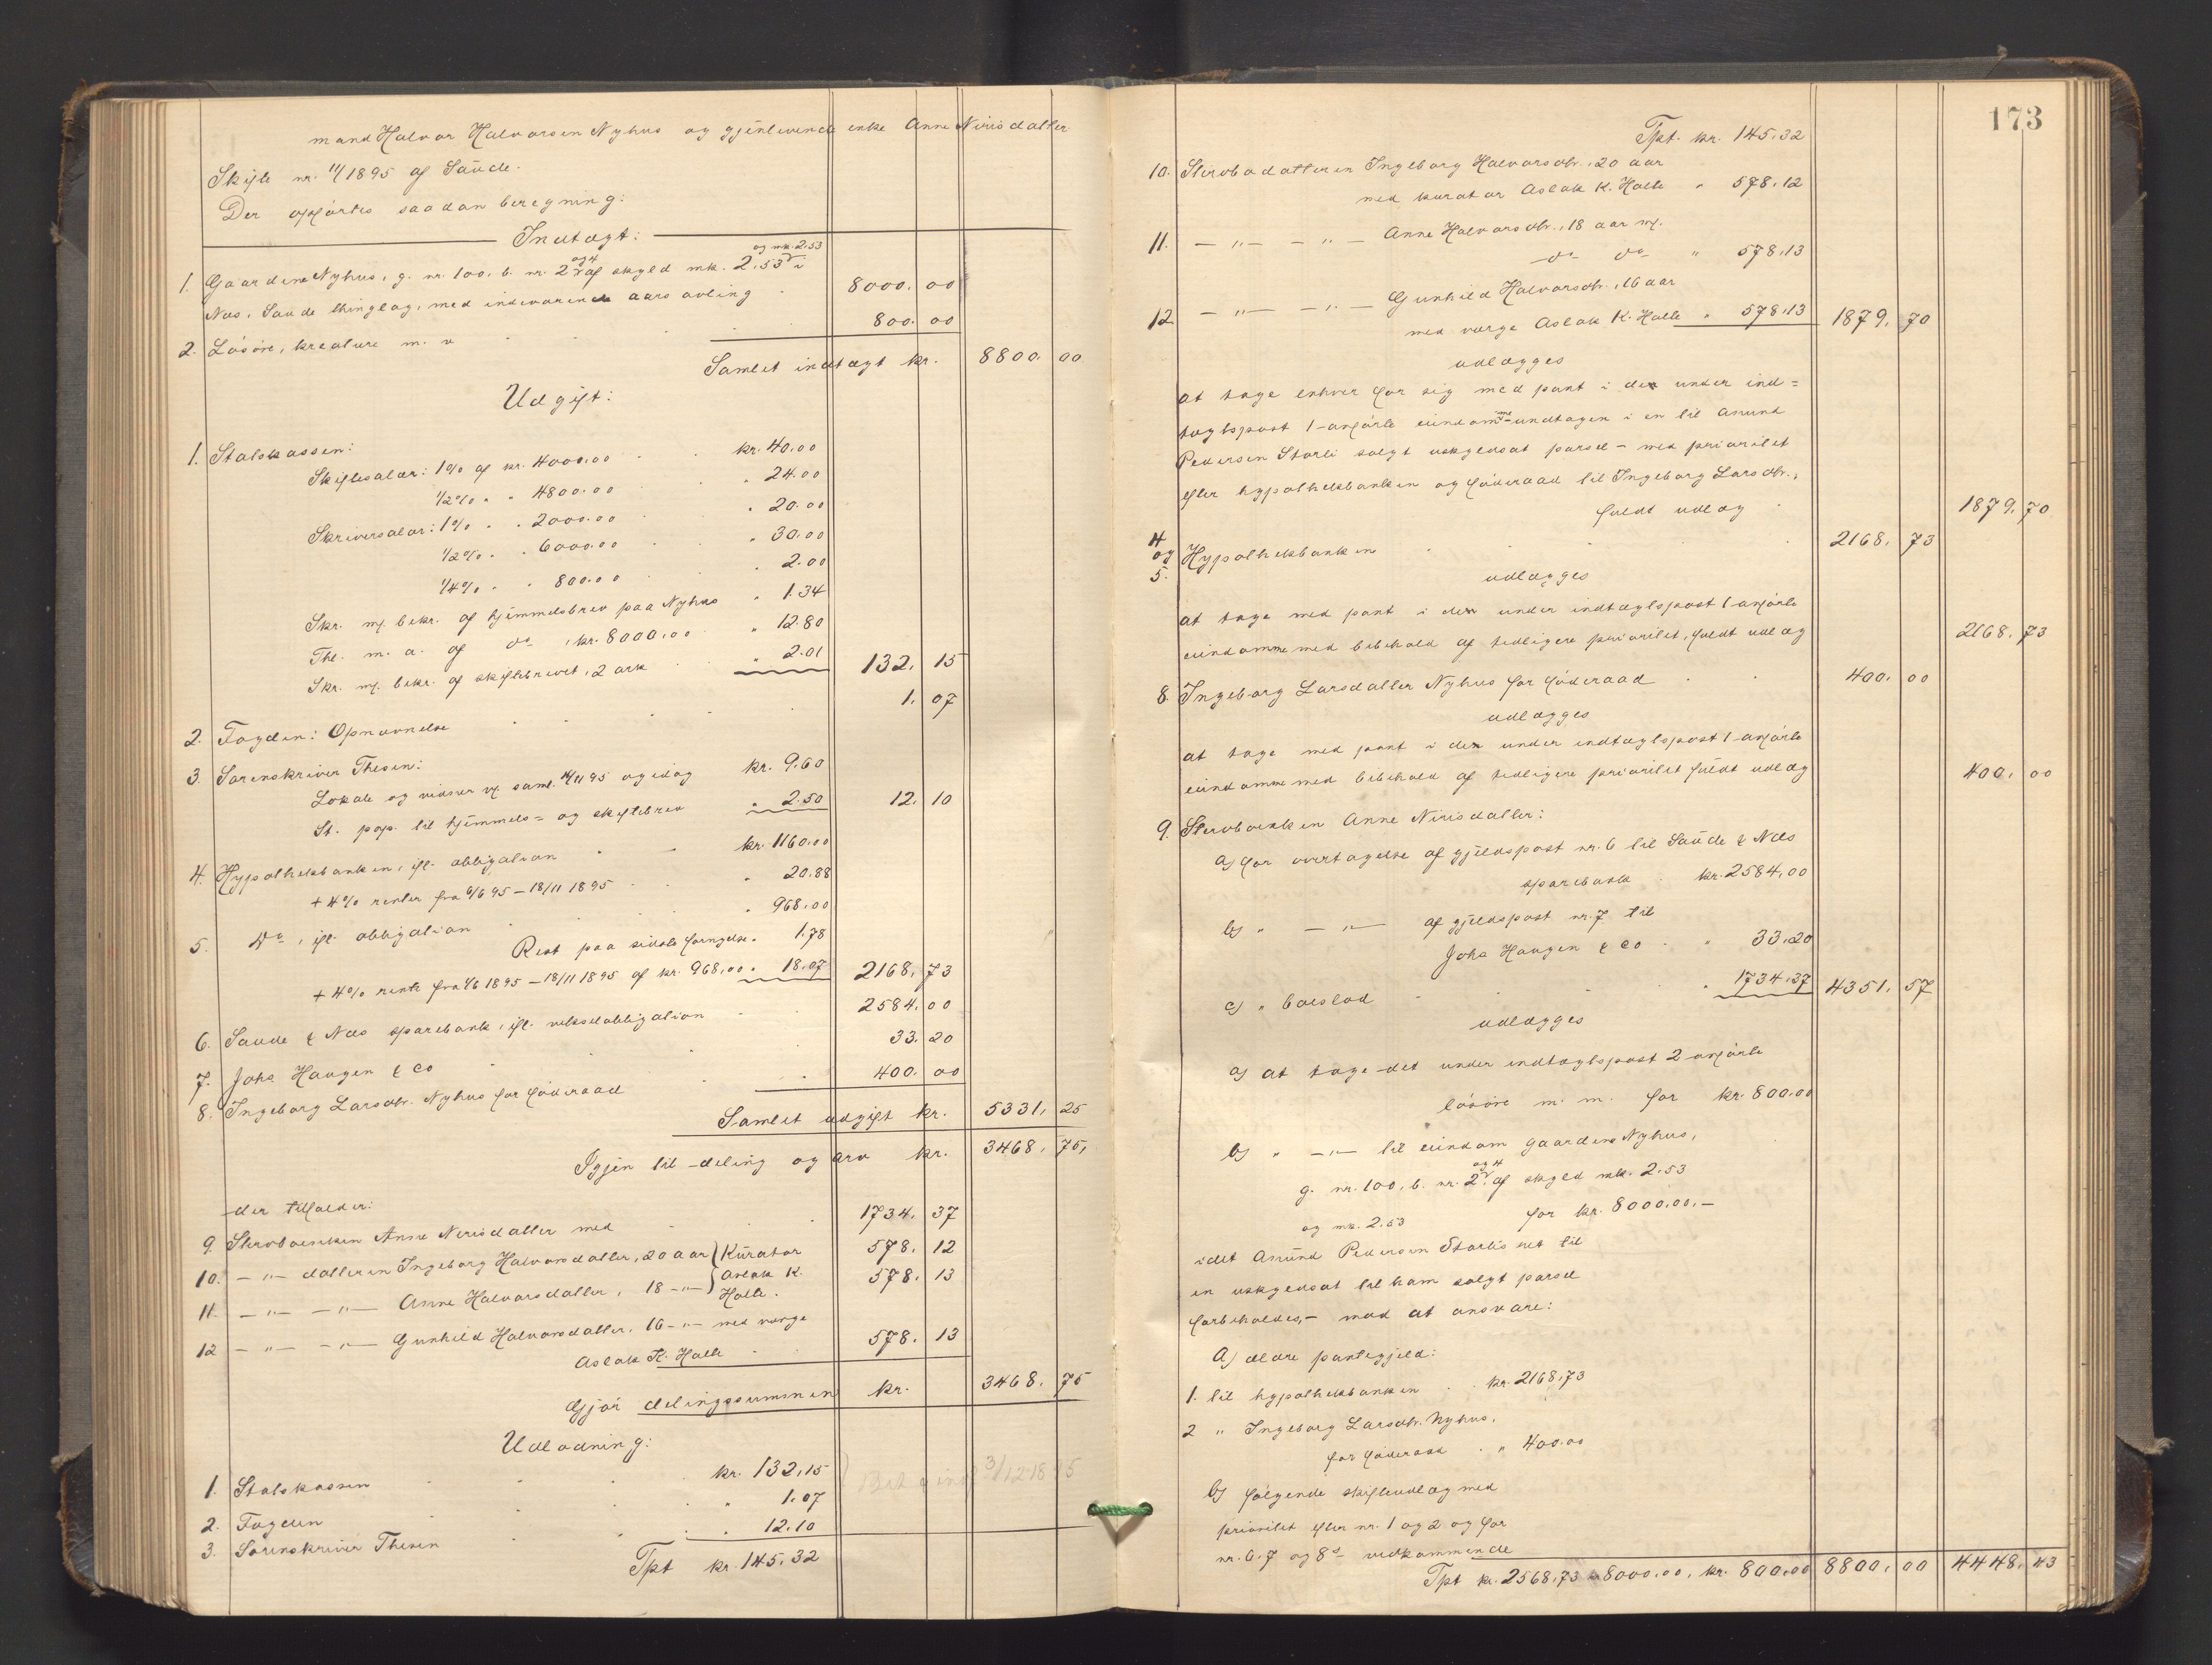 mand Halvor Halvorsen Nyhus og gjenlevende enke Anne Nirisdatter
Skifte nr. 11/1895 af Saude.
Der opførtes saadan beregning:
Indtægt:
og mk. 2.53
1. Gaardene Nyhus, g. nr. 100, b. nr. 2 og 4 af skyld mk. 2.53 i
Næs, Saude thinglag, med indeværende aars avling 8000. 00
2. Løsøre, kreature m. v 800. 00
Samlet indtægt kr. 8800. 00
Udgift:
1. Statskassen:
Skiftesalær: 1% af kr. 4000.00 kr. 40.00
1/2% " " 4800.00 " 24.00
Skriversalær: 1% " " 2000.00 " 20.00
1/2% " " 6000.00 " 30.00
1/4% " " 800.00 " 2.00
Skr. m/ bekr. af hjemmelsbrev paa Nyhus " 1.34
Thl. m. a. af do, kr. 8000.00 " 12.80
Skr. m/ bekr. af skiftebrevet, 2 ark " 2.01 132. 15
2. Fogden: Opnævnelse 1. 07
3. Sorenskriver Thesen:
Lokale og vidner v/ saml. 14/11 95 og idag kr. 9.60
St. pap. til hjemmels= og skiftebrev " 2.50 12. 10
4. Hypothekbanken, ifl. obligation kr. 1160.00
+ 4% renter fra 6/6 95 – 18/11 1895 " 20.88
5. Do, ifl. obligation " 968.00
Rest paa sidste fornyelse " 1.78
+ 4% rente fra 1/6 1895 – 18/11 1895 af kr. 968.00 " 18.07 2168. 73
6. Saude & Næs sparebank, ifl. vekselobligation 2584. 00
7. Johs Haugen & Co 33. 20
8. Ingeborg Larsdtr. Nyhus for føderaad 400. 00
Samlet udgift kr. 5331. 25
Igjen til deling og arv kr. 3468. 75,
der tilfalder:
9. Stervboenken Anne Nirisdatter med 1734. 37
10. – " – datteren Ingeborg Halvorsdatter, 20 aar } Kurator 578. 12
11. – " – – " – Anne Halvorsdatter, 18 – " – } Aslak K. Holte. 578. 13
12 – " – – " – Gunhild Halvorsdatter, 16 – " – med værge
Aslak K. Holte 578. 13
Gjør delingssummen kr. 3468. 75
Udlodning:
1. Statskassen kr. 132.15
2. Fogden " 1.07
3. Sorenskriver Thesen " 12.10
Tpt kr. 145.32
173
Tpt. kr. 145.32
10. Stervbodatteren Ingeborg Halvorsdtr., 20 aar
med kurator Aslak K. Holte " 578.12
11. – " – – " – Anne Halvorsdtr., 18 aar m/.
do do " 578.13
12 – " – – " – Gunhild Halvorsdtr., 16 aar
med værge Aslak K. Holte " 578.13 1879. 70
udlægges
at tage enhver for sig med pant i den under ind=
tægtspost 1 anførte eiendomme – undtagen i en til Anund
Pedersen Storli solgt uskyldsat parsel – med prioritet
efter hypothekbanken og føderaad til Ingeborg Larsdtr.,
fuldt udlæg 1879. 70
4 og 5. Hypothekbanken 2168. 73
udlægges
at tage med pant i den under indtægtspost 1 anførte
eiendomme med bibehold af tidligere prioritet, fuldt udlæg 2168. 73
8. Ingeborg Larsdatter Nyhus for føderaad 400. 00
udlægges
at tage med pant i den under indtægtspost 1 anførte
eiendomme med bibehold af tidligere prioritet fuldt udlæg 400. 00
9. Stervboenken Anne Nirisdatter:
a) for overtagelse af gjeldspost nr. 6 til Saude & Næs
sparebank kr. 2584.00
b) " – " – af gjeldspost nr. 7 til
Johs Haugen & Co " 33.20
c) " boeslod " 1734.37 4351. 57
udlægges
a) at tage det under indtægtspost 2 anførte
løsøre m. m. for kr. 800.00
b) " – " – til eiendom gaardene Nyhus,
g. nr. 100, b. nr. 2 og 4 af skyld mk. 2.53
og mk. 2.53 for kr. 8000.00. –
idet Anund Pedersen Storlis ret til
en uskyldsat til ham solgt parsel
forbeholdes, – mod at ansvare:
A) ældre pantegjeld:
1. til hypothekbanken kr. 2168.73
2 " Ingeborg Larsdtr. Nyhus,
for føderaad " 400.00
b) følgende skifteudlæg med
prioritet efter nr. 1 og 2 og for
nr. 6. 7 og 8s vedkommende
Tpt kr. 2568.73 kr. 8000.00, kr. 800.00 8800. 00 4448. 43